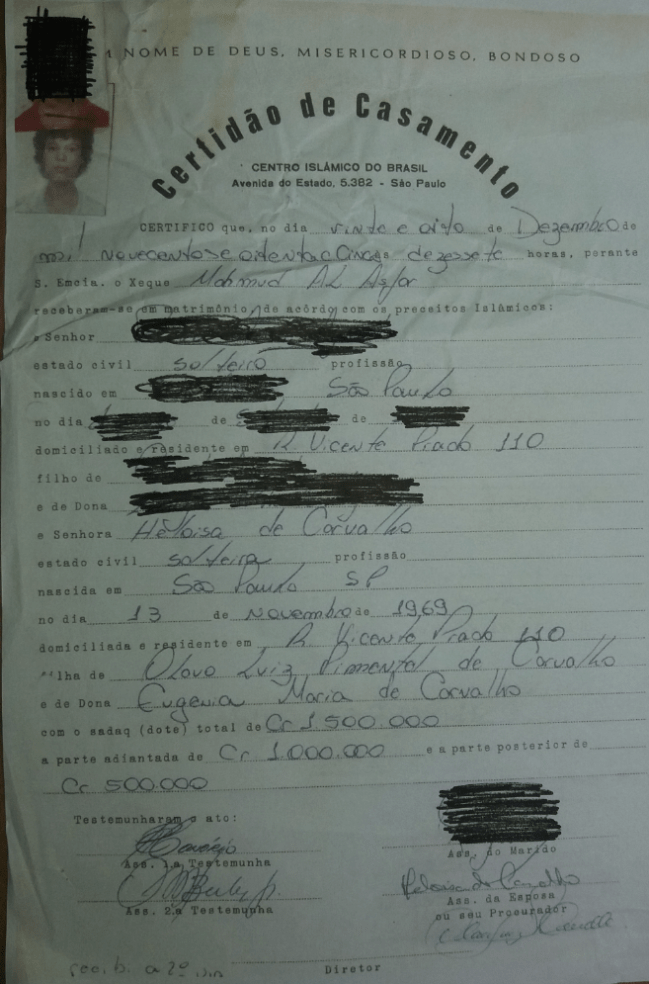 M NOME DE DEUS, MISERICORDIOSO, BONDOSO
Certidão de Casamento
CENTRO ISLÂMICO DO BRASIL
Avenida do Estado, 5.382 - São Paulo
CERTIFICO que, no dia vinte e oito de Dezembro de
mil novecentos e oitenta e cinco às dezessete horas, perante
S. Emcia. o Xeque Mahmud AL
receberam-se em matrimônio, de acôrdo com os preceitos Islâmicos:
Senhor
estado civil solteiro profissão
nascido em São Paulo
no dia de de
domiciliado e residente em R. Vicente Prado 110
filho de
e de Dona
e Senhora Hêloisa de Carvalho
estado civil solteira profissão
nascida em São Paulo SP
no dia 13 de novembro de 1969
domiciliada e residente em R Vicente Prado 110
filha de Olavo Luiz Pimentel de Carvalho
e de Dona Eugenia Maria de Carvalho
com o sadaq (dote) total de Cr 1.500.000
a parte adiantada de Cr 1.000.000 e a parte posterior de
Cr 500.000
Testemunharam o ato:
Ass. do Marido
Ass. 1.a Testemunha
Heloisa de Carvalho
Ass. da Esposa
ou seu Procurador
Ass. 2.a Testemunha
Diretor